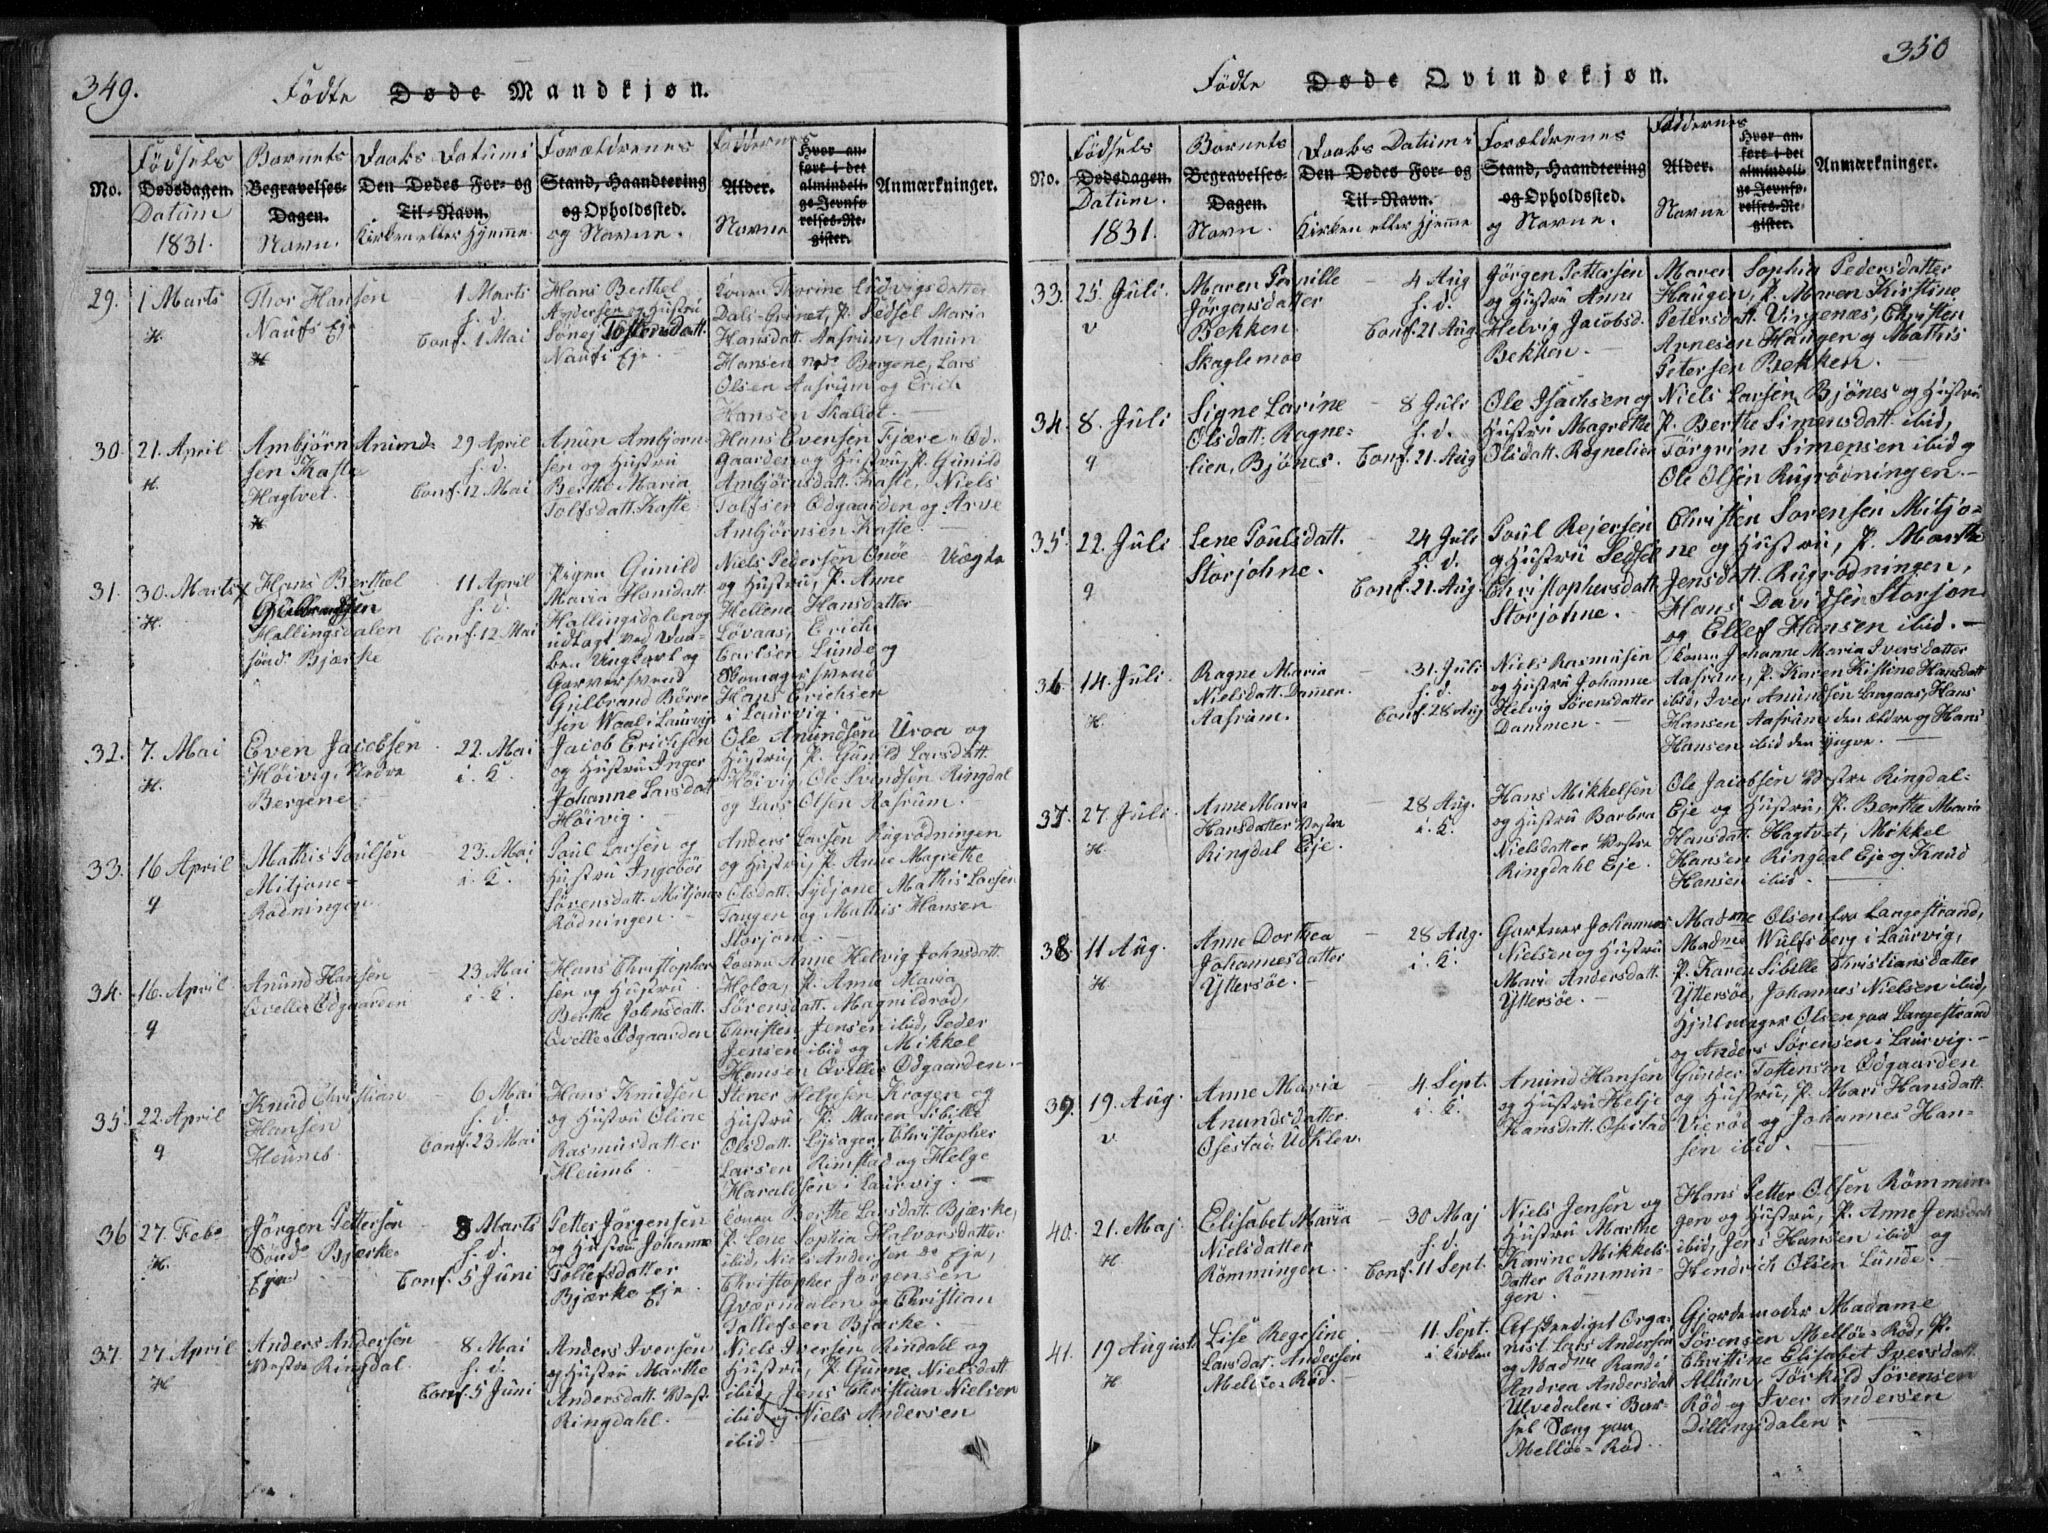 349.
Födte Døde Mandkjøn.
No.
Födsels
Dødsdagen.
Datum
1831.
Barnets
Begravelses-
Dagen.
Navn.
Daabs Datum i
Den Dødes For- og
Til-Navn.
Kirken eller Hjemme
Forældrenes
Stand, Haandtering
og Opholdssted.
og Navne.
Faddernes
Alder.
Navne
Hvor an-
ført i det
almindeli-
ge Jevnfø-
relses-Re-
gister.
Anmærkninger.
29. 1 Marts
H.
Thor Hansen
Naufs Eje
H
1 Marts
h. d.
Conf. 1 Mai
Hans Berthel
Andersen og Hustru
Tostensdatt.
Naufs Eje.
Konen Thorine Ludvigsdatter
Dals-Grenet, P. Sidsel Maria
Hansdatt. Aasrum, Anun
Hansen nedr Bergene, Lars
Olsen Aasrum og Erich
Hansen Skalist.
30. 21. April
H.
Ambjörn Anund-
sen Kaste
Hagtvet.
H
29 April
h. d.
Conf. 12 Mai
Anun Ambjörn-
sen og Hustru
Berthe Maria
Tolfsdatt. Kaste
Hans Evensen Fjære-Od-
gaarden og Hustru, P. Gunild
Ambjörnsdatt. Kaste, Niels
Tolfsen Odgaarden og Arve
Ambjörnsen Kaste.
31. 30. Marts
H.
Hans Berthel
Gulbrandsen
Hallingsdalen
sönd. Bjærke
11 April
h. d.
Conf. 12 Mai
Pigen Gunild
Maria Hansdatt.
Hallingsdalen og
udlagt ved Daa-
ben Ungkarl og
Garversvend
Gulbrand Börre-
sen Waal i Laurvig
Niels Pedersen Onöe
og Hustru, P. Anne
Hellene Hansdatter
Lövaas, Erich
Carlsen Lunde og
Skomagersvend
Hans Erichsen
i Laurvig.
Uægte
32. 7. Mai
H.
Even Jacobsen
Höivig, Nedre
Bergene
22. Mai
i. K.
Jacob Erichsen
og Hustru Inger
Johanne Larsdatt
Höivig.
Ole Anundsen Uroa og
Hustru, P. Gunild Larsdatt.
Höivig, Ole Svendsen Ringdal
og Lars Olsen Aasrum.
33. 16 April
9
Mathis Poulsen
Mitjone-
Rödningen
23. Mai
i. K.
Poul Larsen og
Hustru Ingebör
Sörensdatt. Mitjone
Rödningen.
Anders Larsen Rugrödningen
og Hustru, P. Anne Magrethe
Olsdatt. Sydjone, Mathis Larsen
Tangen og Mathis Hansen
Storjone.
34. 16. April
9
Anund Hansen
Kvelle Odgaarden
23 Mai
i. K.
Hans Christopher-
sen og Hustru
Berthe Johnsdatt.
Qvelle Odgaarden
Konen Anne Helvig Johnsdatt.
Holoa, P. Anne Maria
Sörensdatt. Magnildröd,
Christen Jensen ibid, Peder
Jensen ibid og Mikkel
Hansen Qvelle Odgaarden.
35. 22 April
9
Knud Christian
Hansen
Heumb.
6 Mai
h. d.
Conf. 23 Mai
Hans Knudsen
og Hustru Oline
Rasmusdatter
Heumb.
Stener Helgesen Kragen og
Hustru, P. Maren Sibille
Olsdatt. Lysager, Christopher
Larsen Rimstad og Helge
Haraldsen i Laurvig.
36 27. Febr
H.
Jörgen Pettersen
Söndr Bjærke
Eje
8 Marts
h. d.
Conf. 5 Juni
Petter Jörgensen
og Hustru Johanne
Tollefsdatter
Bjærke Eje.
Konen Berthe Larsdatt. Bjærke,
P. Lene Sophia Halvorsdatter
ibid, Niels Andersen do Eje,
Christopher Jörgensen
Gværndalen og Christian
Tollefsen Bjærke.
37. 27 April
H
Anders Andersen
Vestre Ringdal.
8 Mai
h. d.
Conf. 5 Juni
Anders Iversen
og Hustru Marthe
Andersdatt. Vest-
Ringdahl.
Niels Iversen Rindahl og
Hustru, P. Gunne Nielsdatt.
ibid, Jens Christian Nielsen
ibid og Niels Andersen
ibid.
350
Födte Døde Qvindekjøn.
No.
Födsels
Dødsdagen.
Datum.
1831.
Barnets
Begravelses-
Dagen.
Navn.
Daabs Datum i
Den Dødes For- og
Til-Navn.
Kirken eller Hjemme
Forældrenes
Stand, Haandtering
og Opholdssted.
og Navne.
Faddernes
Alder.
Navne
Hvor an-
ført i det
almindeli-
ge Jevnfø-
relses-Re-
gister.
Anmærkninger.
33. 25. Juli.
v
Maren Pernille
Jörgensdatter
Bekken
Skaglemoe
4 Aug
h. d.
Conf. 21 Aug
Jörgen Pettersen
og Hustru Anne
Helvig Jacobsd.
Bekken.
Maren Sophia Pedersdatter
Haugen, P. Maren Kirstine
Petersdatt. Virgenæs, Christen
Arnesen Haugen og Mathis
Petersen Bekken.
34. 8. Juli
9
Signe Larine
Olsdatt. Ragne-
lien, Bjönes.
8 Juli
h. d.
Conf. 21 Aug
Ole Isachsen og
Hustru Magrethe
Olsdatt. Rognelien
Niels Larsen Bjönes og Hustru
P. Berthe Simensdatt. ibid,
Törgrim Simensen ibid og
Ole Olsen Rugrödningen.
35. 22. Juli
9
Lene Poulsdatt.
Storjohne.
24 Juli
h. d.
Conf. 21 Aug.
Poul Rejersen
og Hustru Sidsel
Christophersdatt.
Storjohne.
Christen Sörensen Mitjo-
ne og Hustru, P. Marthe
Jensdatt. Rugrödningen,
Hans Davidsen Storjon
og Ellef Hansen ibid.
36. 14. Juli
H.
Ragne Maria
Nielsdatt. Dammen.
Aasrum.
31. Juli
h. d.
Conf. 28 Aug
Niels Rasmusen
og Hustru Johanne
Helvig Sörensdatter
Dammen.
Konen Johanne Maria Iversdatter
Aasrum, P. Karen Kistine Hansdatt
ibid, Iver Anundsen Langaas, Hans
Hansen Aasrum den ældre og Hans
Hansen ibid den yngre.
37. 27 Juli.
H.
Anne Maria
Hansdatter Vestre
Ringdal Eje.
28 Aug.
i. K.
Hans Mikkelsen
og Hustru Barbra
Nielsdatter Vestre
Ringdahl Eje
Ole Jacobsen Vestre Ringdal-
Eje og Hustru, P. Berthe Maria
Hansdatt. Hagtvet, Mikkel
Hansen Ringdal Eje og Knud
Hansen ibid.
38. 11 Aug.
H.
Anne Dorthea
Johannesdatter
Yttersöe.
28 Aug.
i. K.
Gartner Johannes
Nielsen og Hustru
Mari Andersdatt.
Yttersöe.
Madme Olsen fra Langestrand,
Madme Wulfsberg i Laurvig,
P. Karen Sibille Christiansdatter
Yttersöe, Johannes Nielsen ibid,
Hjulmager Olsen paa Langestrand
og Anders Sörensen i Laurvig.
39. 19. Aug.
v
Anne Maria
Anundsdatter
Ofestad, Udklev.
4 Sept.
i. K.
Anund Hansen
og Hustru Helje
Hansdatt. Ofestad
Gunder Tostensen Odgaarden
og Hustru, P. Mari Hansdatt.
Vieröd og Johannes Han-
sen ibid.
40. 21. Maj.
H
Elisabet Maria
Nielsdatter
Römmingen.
30 Maj
h. d.
Conf. 11 Sept.
Niels Jensen og
Hustru Marthe
Karine Mikkels-
datter Römmin-
gen.
Hans Petter Olsen Römmin-
gen og Hustru, P. Anne Jensdatt
ibid, Jens Hansen ibid og
Hendrich Olsen Lunde.
41. 19 August
H
Lise Regesine
Larsdat. Andersen
Melløe-Röd.
11. Sept.
i Kirken
Afskediget Orga-
nist Lars Andersen
og Madme Randi
Andrea Andersdatt
Ulvedalen i Bar-
sel Sæng paa
Melløe-Röd.
Gjordemoder Madame
Sörensen Melløe-Röd, P.
Christine Elisabet Iversdatt.
Allum, Törkild Sörensen
Röd og Iver Andersen
Dillingsdalen